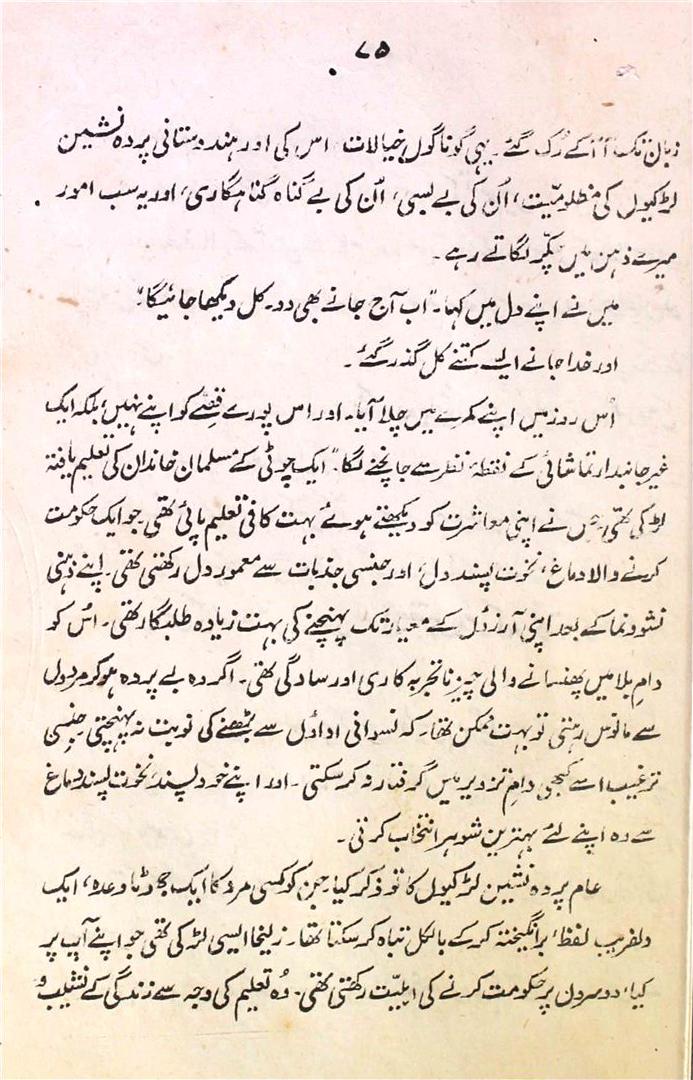 ۷۵
زبان تک آ آ کے رُک گئے ۔ یہی گوناگوں خیالات اس کی اور ہندوستانی پردہ نشین
لڑکیوں کی مظلومیّت، اُن کی بے بسی، اُن کی بے گناہ گناہگاری، اور یہ سب امور
میرے ذہن میں چکّر لگاتے رہے ۔
میں نے اپنے دل میں کہا ۔ "اب آج جانے بھی دو ۔ کل دیکھا جائیگا"
اور خدا جانے ایسے کتنے کل گذر گئے ۔
اُس روز میں اپنے کمرے میں چلا آیا ۔ اور اس پورے قصّے کو اپنے نہیں، بلکہ ایک
غیر جانبدار تماشائی کے نقطۂ نظر سے جانچنے لگا ۔ "ایک چوٹی کے مسلمان خاندان کی تعلیم یافتہ
لڑکی تھی، جس نے اپنی معاشرت کو دیکھتے ہوئے بہت کافی تعلیم پائی تھی جو ایک حکومت
کرنے والا دماغ، نخوت پسند دل، اور جنسی جذبات سے معمور دل رکھتی تھی ۔ اپنے ذہنی
نشوونما کے بعد اپنی آرزوں کے معیار تک پہنچنے کی بہت زیادہ طلبگار تھی ۔ اُس کو
دامِ بلا میں پھنسانے والی چیز ناتجربہ کاری اور سادگی تھی ۔ اگر وہ بے پردہ ہو کر مردوں
سے مانوس رہتی تو بہت ممکن تھا ۔ کہ نسوانی اداؤں سے بڑھنے کی نوبت نہ پہنچتی جنسی
ترغیب اسے کبھی دامِ تزویر میں گرفتار نہ کر سکتی ۔ اور اپنے خود پسند، نخوت پسند دماغ
سے وہ اپنے لئے بہترین شوہر انتخاب کرتی ۔
عام پردہ نشین لڑکیوں کا تو ذکر کیا ۔ جن کو کسی مرد کا ایک جھوٹا وعدہ، ایک
دلفریب لفظ، برانگیختہ کر کے بالکل تباہ کر سکتا تھا ۔ زلیخا ایسی لڑکی تھی جو اپنے آپ پر
کیا، دوسروں پر حکومت کرنے کی اہلیّت رکھتی تھی ۔ وُہ تعلیم کی وجہ سے زندگی کے نشیب و